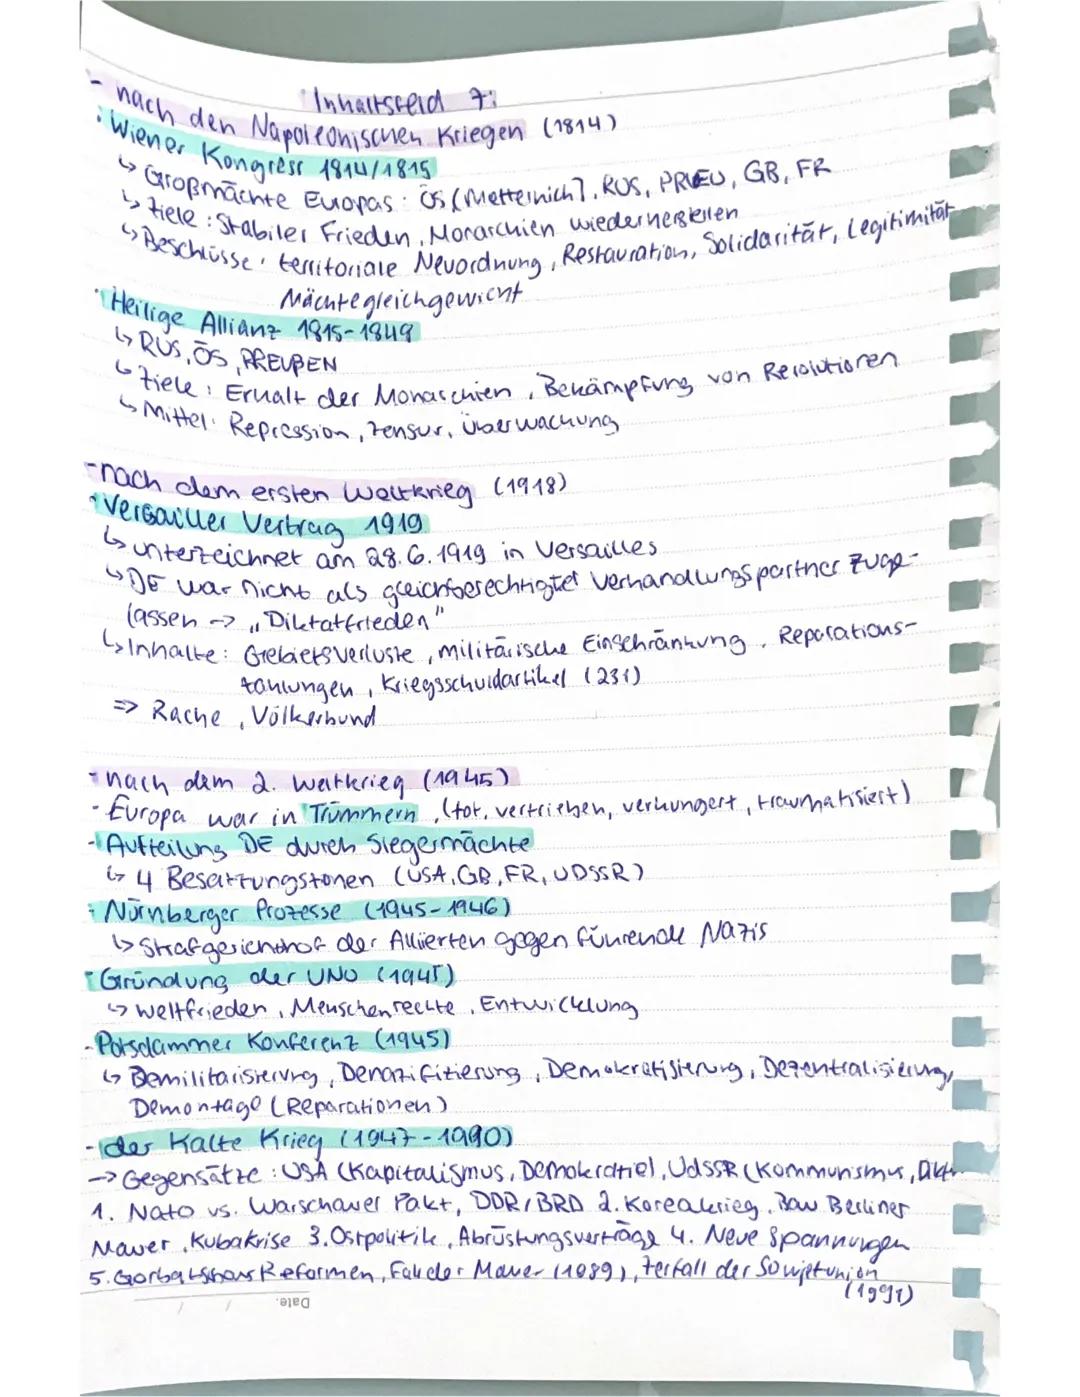 Inhaltsfeld 7:
- nach den Napoleonischen Kriegen (1814)
· Wiener Kongress 1814/1815
↳ Großmächte Europas: ÖS (Metternich), RUS, PREU, GB, FR
↳ Ziele: Stabiler Frieden, Monarchien wiederherstellen
↳ Beschlüsse: territoriale Neuordnung, Restauration, Solidarität, Legitimität
Mächtegleichgewicht
· Heilige Allianz 1815-1849
↳ RUS, ÖS, PREUßEN
↳ Ziele: Erhalt der Monarchien, Bekämpfung von Revolutionen
↳ Mittel: Repression, Zensur, Überwachung
- nach dem ersten Weltkrieg (1918)
· Versailler Vertrag 1919
↳ unterzeichnet am 28.6.1919 in Versailles
↳ DE war nicht als gleichberechtigter Verhandlungspartner zuge-
lassen → „Diktatfrieden"
↳ Inhalte: Gebietsverluste, militärische Einschränkung, Reparations-
zahlungen, Kriegsschuldartikel (231)
⇒ Rache, Völkerbund
- nach dem 2. Weltkrieg (1945)
- Europa war in Trümmern, (tot, vertrieben, verhungert, traumatisiert)
- Aufteilung DE durch Siegermächte
↳ 4 Besatzungszonen (USA, GB, FR, UDSSR)
· Nürnberger Prozesse (1945-1946)
↳ Strafgerichtshof der Alliierten gegen führende Nazis
· Gründung der UNO (1945)
↳ Weltfrieden, Menschenrechte, Entwicklung
- Potsdammer Konferenz (1945)
↳ Demilitarisierung, Denazifizierung, Demokratisierung, Dezentralisierung,
Demontage (Reparationen)
- der Kalte Krieg (1947-1990)
→ Gegensätze: USA (Kapitalismus, Demokratie), UdSSR (Kommunismus,
1. Nato vs. Warschauer Pakt, DDR/BRD 2. Koreakrieg, Bau Berliner
Mauer, Kubakrise 3. Ostpolitik, Abrüstungsverträge 4. Neue Spannungen
5. Gorbatschows Reformen, Fall der Mauer (1989), Zerfall der Sowjetunion
(1991)
Date: